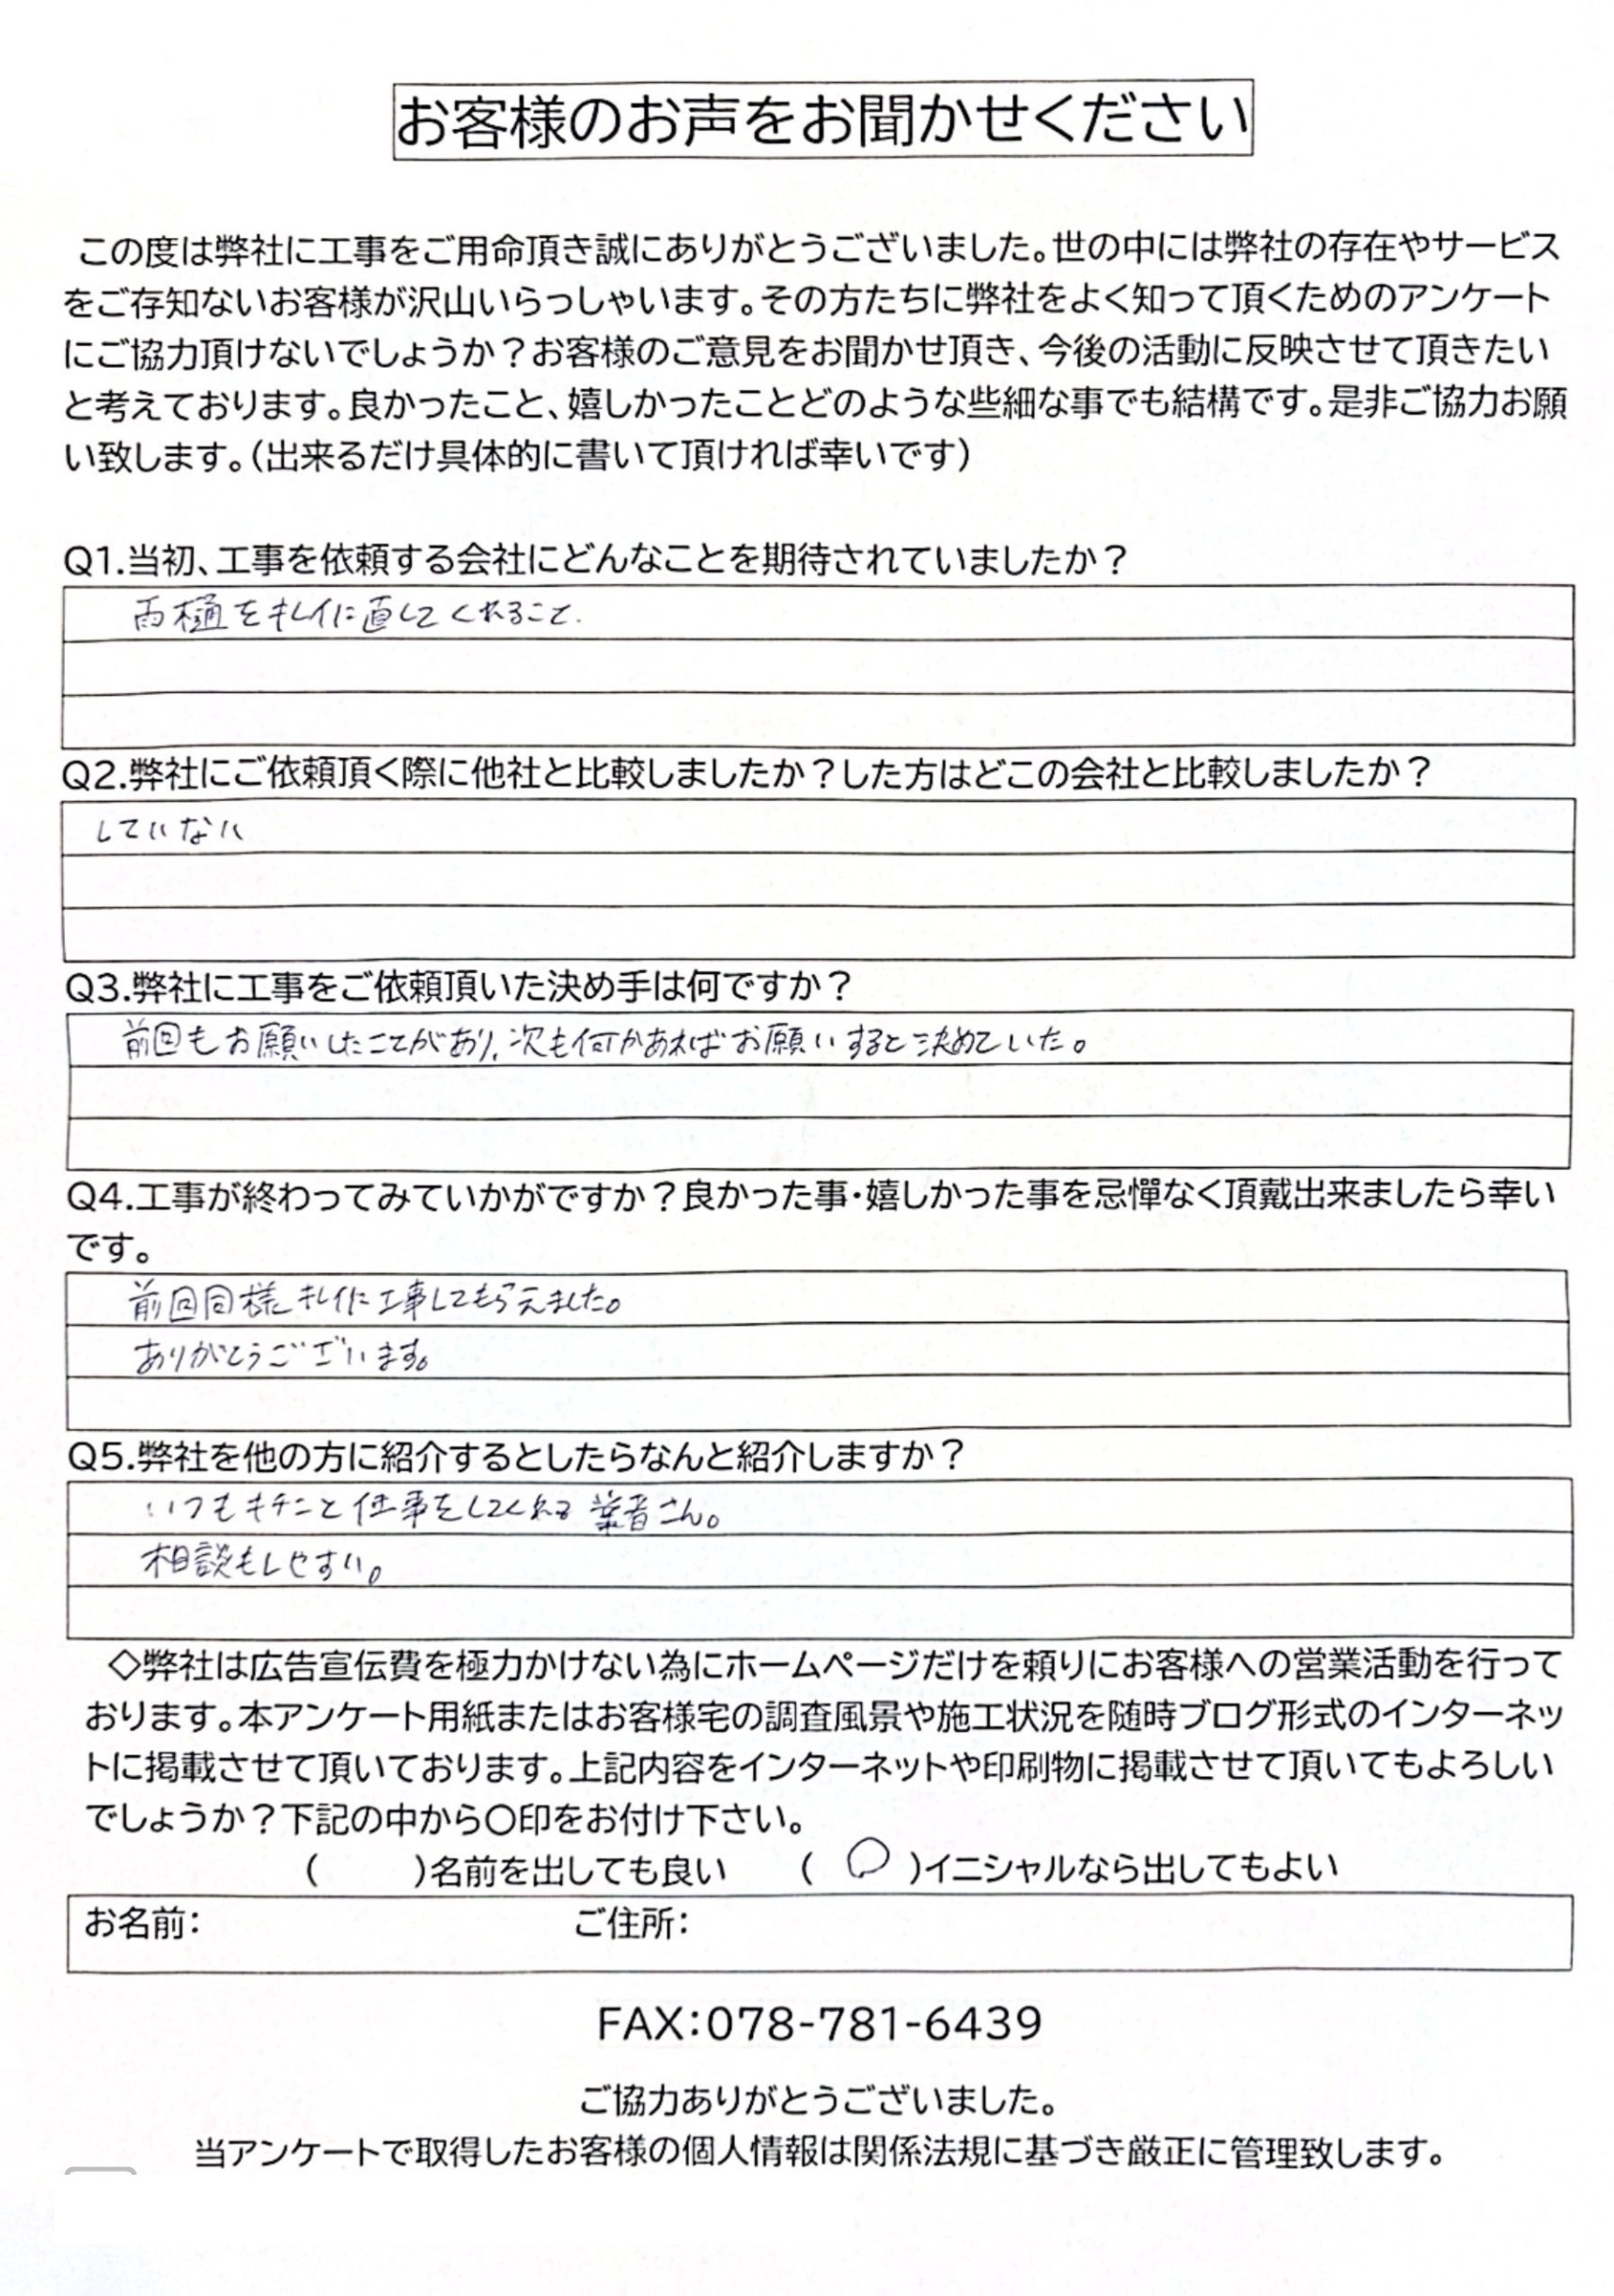 お客様のお声をお聞かせください
この度は弊社に工事をご用命頂き誠にありがとうございました。世の中には弊社の存在やサービス
をご存知ないお客様が沢山いらっしゃいます。その方たちに弊社をよく知って頂くためのアンケート
にご協力頂けないでしょうか？お客様のご意見をお聞かせ頂き、今後の活動に反映させて頂きたい
と考えております。良かったこと、嬉しかったことどのような些細な事でも結構です。是非ご協力お願
い致します。（出来るだけ具体的に書いて頂ければ幸いです）
Q1.当初、工事を依頼する会社にどんなことを期待されていましたか？
雨樋をキレイに直してくれること.
Q2.弊社にご依頼頂く際に他社と比較しましたか？した方はどこの会社と比較しましたか？
していない
Q3.弊社に工事をご依頼頂いた決め手は何ですか？
前回もお願いしたことがあり、次も何かあればお願いすると決めていた。
Q4.工事が終わってみていかがですか？良かった事・嬉しかった事を忌憚なく頂戴出来ましたら幸い
です。
前回同様キレイに工事してもらえました。
ありがとうございます。
Q5.弊社を他の方に紹介するとしたらなんと紹介しますか？
いつもキチンと仕事をしてくれる業者さん。
相談もしやすい。
◇弊社は広告宣伝費を極力かけない為にホームページだけを頼りにお客様への営業活動を行って
おります。本アンケート用紙またはお客様宅の調査風景や施工状況を随時ブログ形式のインターネッ
トに掲載させて頂いております。上記内容をインターネットや印刷物に掲載させて頂いてもよろしい
でしょうか？下記の中から〇印をお付け下さい。
（　　）名前を出しても良い　（ 〇 ）イニシャルなら出してもよい
お名前：　ご住所：
FAX：078-781-6439
ご協力ありがとうございました。
当アンケートで取得したお客様の個人情報は関係法規に基づき厳正に管理致します。